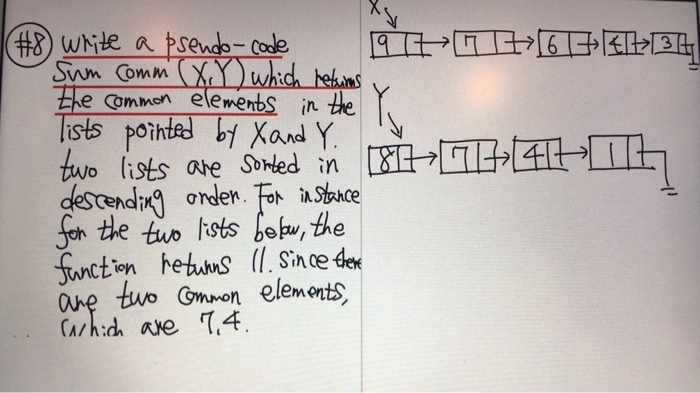 #8 Write a pseudo-code
Sum Comm (X,Y) which returns
the common elements in the
lists pointed by X and Y.
two lists are sorted in
descending order. For instance
for the two lists below, the
function returns 11. Since there
are two common elements,
which are 7,4.
X
9 7 6 4 3
Y
8 7 4 1